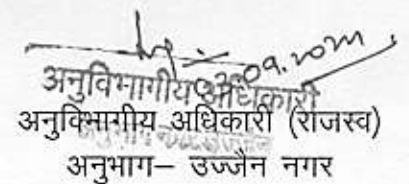 अनुविभागीय अधिकारी
अनुविभागीय अधिकारी (राजस्व)
अनुभाग– उज्जैन नगर